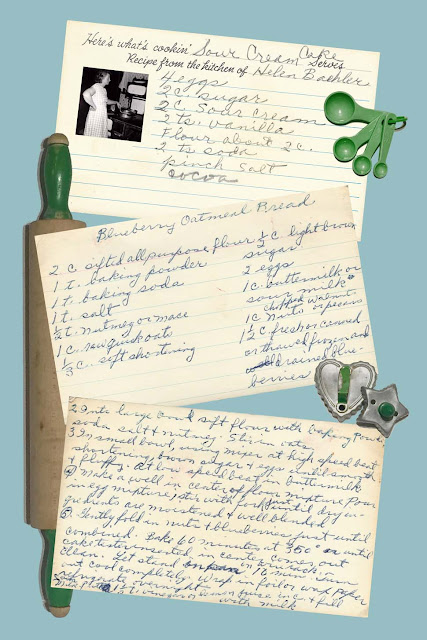 Here's what's cookin' Sour Cream Cake
Serves
Recipe from the kitchen of Helen Baehler
4 eggs
2 C. sugar
2 C. Sour Cream
2 ts. vanilla
Flour about 2 c.
2 ts soda
pinch salt
cocoa
Blueberry Oatmeal Bread
2 c. sifted all purpose flour
1 t. baking powder
1 t. baking soda
1 t. salt
1/2 t. nutmeg or mace
1 c. raw quick oats
1/3 c. soft shortening
1/2 c. light brown
sugar
2 eggs
1 c. buttermilk or
sour milk
chopped walnut
1 c nuts or pecans
1 1/2 c. fresh or canned
or thawed frozen and
drained blue-
berries
2 Into large bowl sift flour with baking Powd
soda salt & nutmeg. Stir in oats
3 In small bowl, using mixer at high speed beat
shortening, brown sugar & eggs until smooth
& fluffy. At low speed beat in buttermilk
4 Make a well in center of flour mixture Pour
in egg mixture, stir with fork until dry in-
gredients are moistened & well blended
5 Gently fold in nuts & blueberries just until
combined. Bake 60 minutes at 350° or until
cake tester inserted in center comes out
clean. Let stand in pan 10 min. Turn
out cool completely. Wrap in foil or wax paper
refrigerate overnight
vinegar or lemon juice in c. & fill
with milk